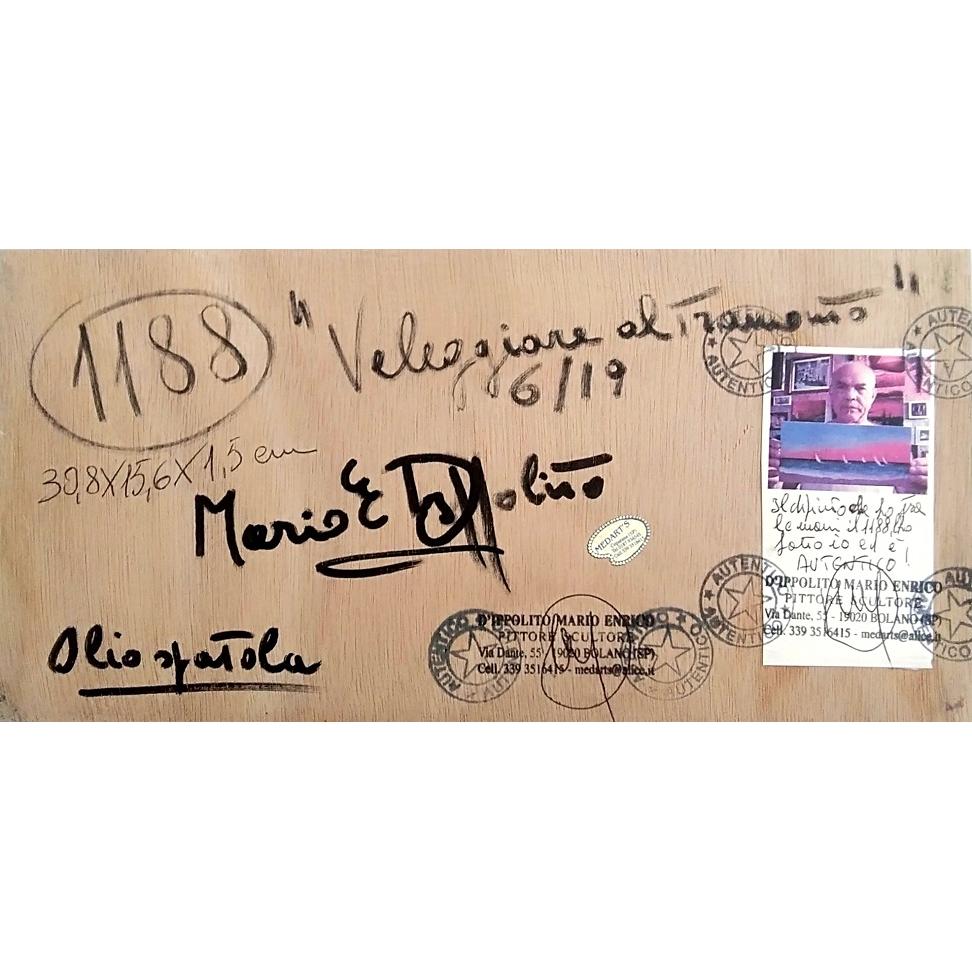 1188
"Veleggiare al Tramonto"
6/19
30,8X15,6X1,5 cm
Mario E D'Ippolito
Olio spatola
MEDART'S
AUTENTICO
AUTENTICO
D'IPPOLITO MARIO ENRICO
PITTORE SCULTORE
Via Dante, 55 - 19020 BOLANO (SP)
Cell. 339 3516415 - medarts@alice.it
AUTENTICO
AUTENTICO
AUTENTICO
AUTENTICO
Il dipinto che ho tra
le mani il 1188 l'ho
fatto io ed è!
AUTENTICO
D'IPPOLITO MARIO ENRICO
PITTORE SCULTORE
Via Dante, 55 - 19020 BOLANO (SP)
Cell. 339 3516415 - medarts@alice.it
AUTENTICO
AUTENTICO
AUTENTICO